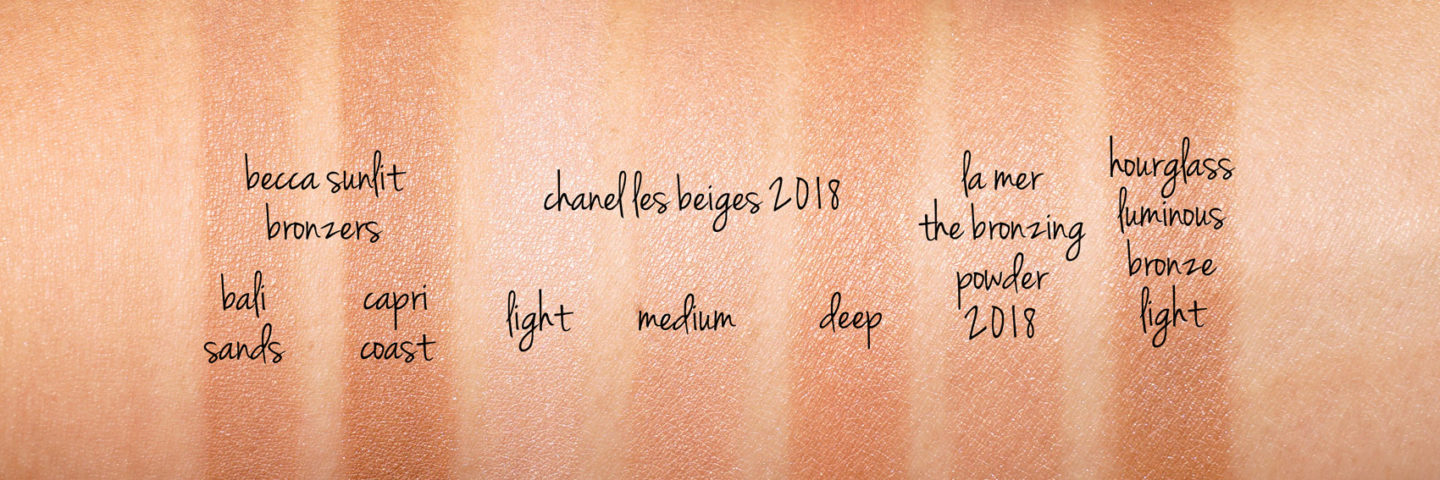 becca sunlit
bronzers
bali
sands
capri
coast
chanel les beiges 2018
light
medium
deep
la mer
the bronzing
powder
2018
hourglass
luminous
bronze
light